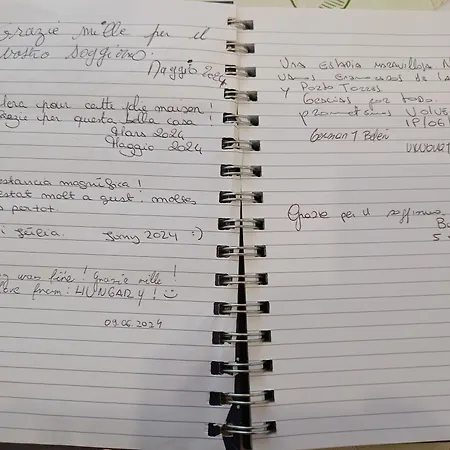 grazie mille per il
vostro soggiorno.
Maggio 2024
pour cette jolie maison!
grazie per questa bella casa!
Mars 2024
Maggio 2024
estancia magnifica!
estat molt a gust. moltes
per tot.
i Júlia. Juny 2024 :)
was fine! Grazie mille!
from: HUNGARY!
09.06.2024
Una estadia maravillosa N
vamos enamorados de
y Porto Torres
Gracias por todo.
prometemos
German y Belen
Grazie per il soggiorno